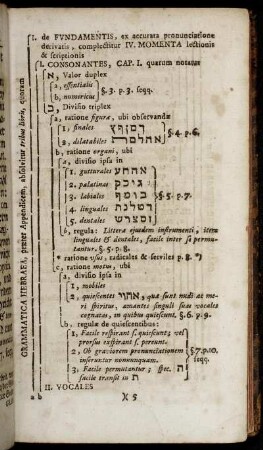 I. de FVNDAMENTIS, ex accurata pronunciatione
derivatis, complectitur IV. MOMENTA lectionis
& scriptionis
I. CONSONANTES, CAP. I. quarum notatur
א, Valor duplex
a, essentialis
b, numericus
§. 3. p. 3. seqq.
ב, Divisio triplex
a, ratione figuræ, ubi observandæ
1, finales
2, dilatabiles
§. 4. p. 6.
b, ratione organi, ubi
a, divisio ipsa in
1, gutturales אחהע
2, palatinas גיכק
3, labiales בומף
4, linguales דטלנת
5, dentales זסצרש
§. 5. p. 7.
b, regula: Litteræ ejusdem instrumenti, item
linguales & dentales, facile inter se permu-
tantur. §. 5. p. 8.
* ratione usus, radicales & serviles p. 8. *)
c, ratione motus, ubi
a, divisio ipsa in
1, mobiles
2, quiescentes אהוי, quæ sunt nudi ac me-
ri spiritus, amantes singuli suas vocales
cognatas, in quibus quiescunt. §. 6. p. 9.
b, regulæ de quiescentibus:
1, Facile respirant s. quiescunt; vel
prorsus exspirant s. pereunt.
2, Ob graviorem pronunciationem
inseruntur nonnunquam.
3, Facile permutantur; spec. ה
facile transit in ת
§. 7. p. 10.
seqq.
II. VOCALES
a b
X 5
GRAMMATICA HEBRAEA, præter Appendicem, absolvitur tribus libris, quorum